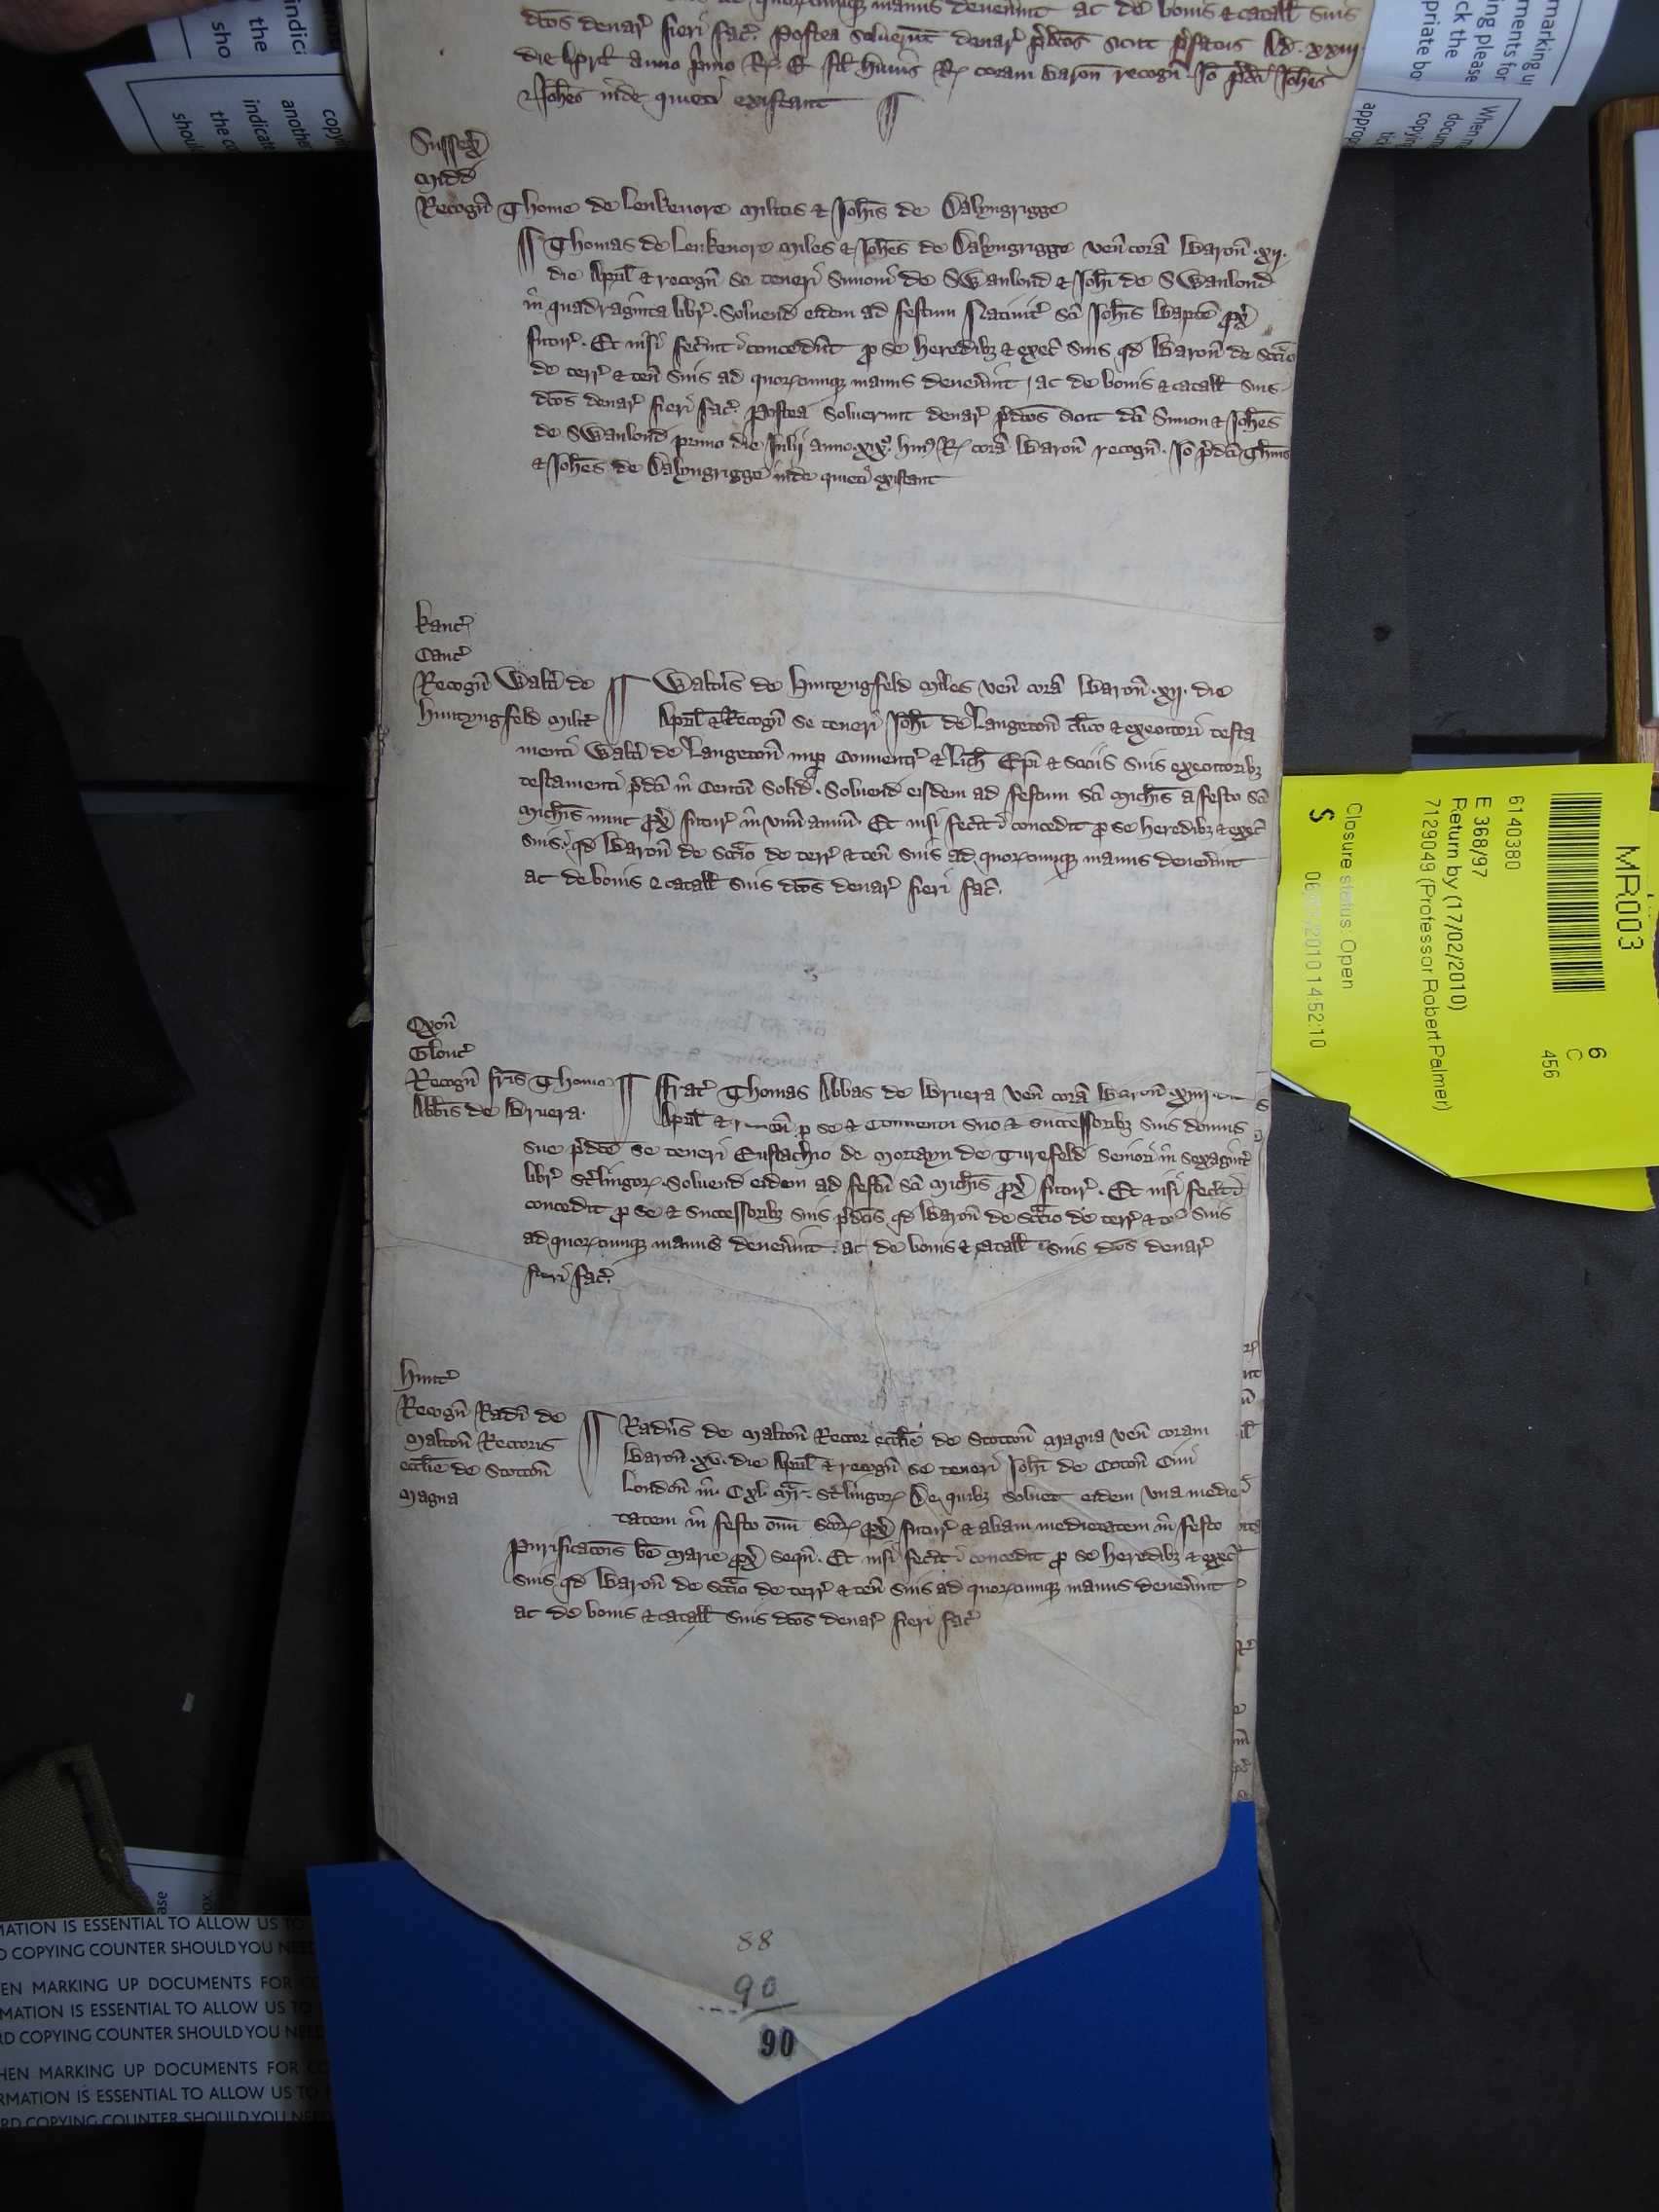 manus deven̄int ac de bonis & catall̄ suis
dc̄os denar̄ fieri fac̄. Postea solverūt denar̄ p̄dc̄os sicut p̄fatus Ad. xxiii
die April̄ anno p̄mo R̄ E fil̄ huius R̄ coram Baron̄ recogn̄. Io p̄dc̄i Joh̄es
& Joh̄es inde quieti existant
Sussex̄
Midd̄
Recogn̄ Thome de Leukenore militis & Joh̄is de Dalyngrigge
Thomas de Leukenore miles & Joh̄es de Dalyngrigge ven̄ corā Baron̄ .xii.
die April̄ & recogn̄ se teneri Simoni de Swanlond & Joh̄i de Swanlond
in quadraginta libr̄. Solvend eidem ad festum Nativit̄ sc̄i Joh̄is Bapt̄e p̄x̄
futur̄. Et nisi fec̄int concedūt p se heredibz & exec̄ suis qd Baron̄ de sc̄c̄io
de terr̄ & ten̄ suis ad quorcumqz manus deven̄int, ac de bonis & catall̄ suis
dc̄os denar̄ fieri fac̄. Postea solverunt denar̄ p̄dc̄os sicut dc̄i Simon & Joh̄es
de Swanlond primo die Julii anno .xix. hui9 R̄ corā Baron̄ recogn̄. Io p̄dc̄i Thom̄s
& Joh̄es de Dalyngrigge inde quieti existant
Kanc̄
Cant̄
Recogn̄ Walt̄i de
Huntyngfeld milit̄
Walt̄us de Huntyngfeld miles ven̄ corā Baron̄ .xii. die
April̄ & Recogn̄ se teneri Joh̄i de Langeton̄ cl̄ico & executori testa
menti Walt̄i de Langeton̄ nup Coventr̄ & Lich̄ Ep̄i & sociis suis executoribz
testamenti p̄dc̄i in Centū solid̄. Solvend eisdem ad festum sc̄i Mich̄is a festo sc̄i
Mich̄is nunc p̄x̄ futur̄ in unū annū. Et nisi fec̄it concedit p se heredibz & exec̄
suis qd Baron̄ de sc̄c̄io de terr̄ & ten̄ suis ad quorcumqz manus deven̄int
ac de bonis & catall̄ suis dc̄os denar̄ fieri fac̄.
Oxon̄
Glouc̄
Recogn̄ fr̄is Thome
Abb̄is de Bruera.
Ffrat̄ Thomas Abbas de Bruera ven̄ corā Baron̄ .xiiii.
April̄ & p se & Conventu suo & successoribz suis domus
sue p̄dc̄e se teneri Eustachio de Mortayn de Turefeld seniori in sexagint̄
libr̄ st̄lingor. Solvend eidem ad festū sc̄i Mich̄is p̄x̄ futur̄. Et nisi fec̄it
concedit p se & successoribz suis p̄dc̄is qd Baron̄ de sc̄c̄io de terr̄ & suis
ad quorcumqz manus deven̄int. ac de bonis & catall̄ suis dc̄os denar̄
fieri fac̄.
Hunt̄
Recogn̄ Rad̄i de
Malton̄ Rectoris
eccl̄ie de Stotton̄
Magna
Rad̄us de Malton̄ Rector eccl̄ie de Stotton̄ Magna ven̄ coram
Baron̄ .xv. die April̄ & recogn̄ se teneri Joh̄i de Coton̄ Civi
London̄ in Cxl. mar̄. st̄lingor De quibz solvet eidem una medie
tatem in festo om̄ sc̄or p̄x̄ futur̄ & aliam medietatem in festo
Purificac̄ois be Marie p̄x̄ sequn̄. Et nisi fec̄it concedit p se heredibz & exec̄
suis qd Baron̄ de sc̄c̄io de terr̄ & ten̄ suis ad quorcumqz manus deven̄int
ac de bonis & catall̄ suis dc̄os denar̄ fieri fac̄
88
90
90
MR003
6140380
E 368/97
Return by (17/02/2010)
7129049 (Professor Robert Palmer)
Closure status: Open
S
2010 14:52:10
6
C
456
MATION IS ESSENTIAL TO ALLOW US TO
D COPYING COUNTER SHOULD YOU NEED
EN MARKING UP DOCUMENTS FOR CO
RMATION IS ESSENTIAL TO ALLOW US TO
RD COPYING COUNTER SHOULD YOU NEED
HEN MARKING UP DOCUMENTS FOR CO
RMATION IS ESSENTIAL TO ALLOW US TO
RD COPYING COUNTER SHOULD YOU NEED